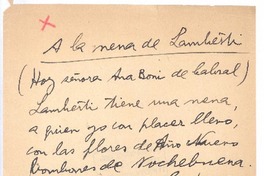 A la nena de Lamberti
(Hoy señora Ana Boni de Cabral)
Lamberti tiene una nena,
a quien yo con placer llevo,
con las flores de Año Nuevo
Bombones de Nochebuena.